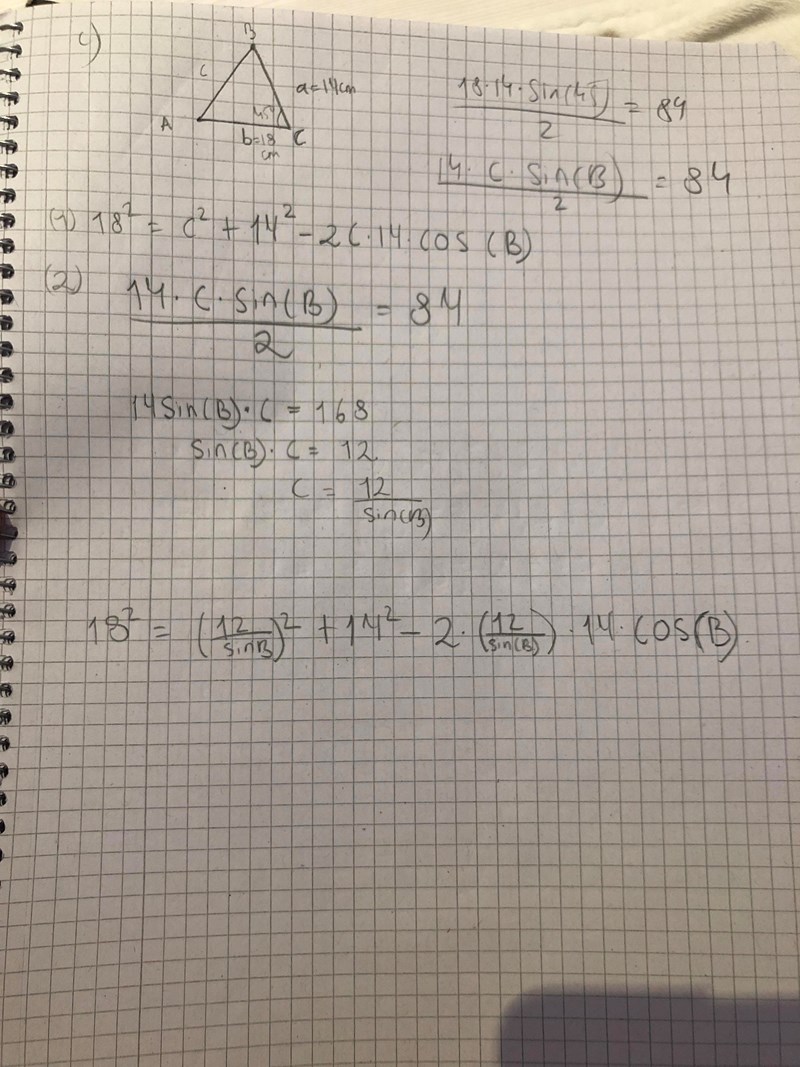 c)
B
C
a=14cm
A
45°
C
b=18
cm
18·14·Sin(45) / 2 = 84
14·C·Sin(B) / 2 = 84
(1) 18² = C² + 14² - 2C·14·COS (B)
(2) 14·C·Sin(B) / 2 = 84
14Sin(B)·C = 168
Sin(B)·C = 12
C = 12 / Sin(B)
18² = (12 / SinB)² + 14² - 2·(12 / Sin(B))·14·COS(B)